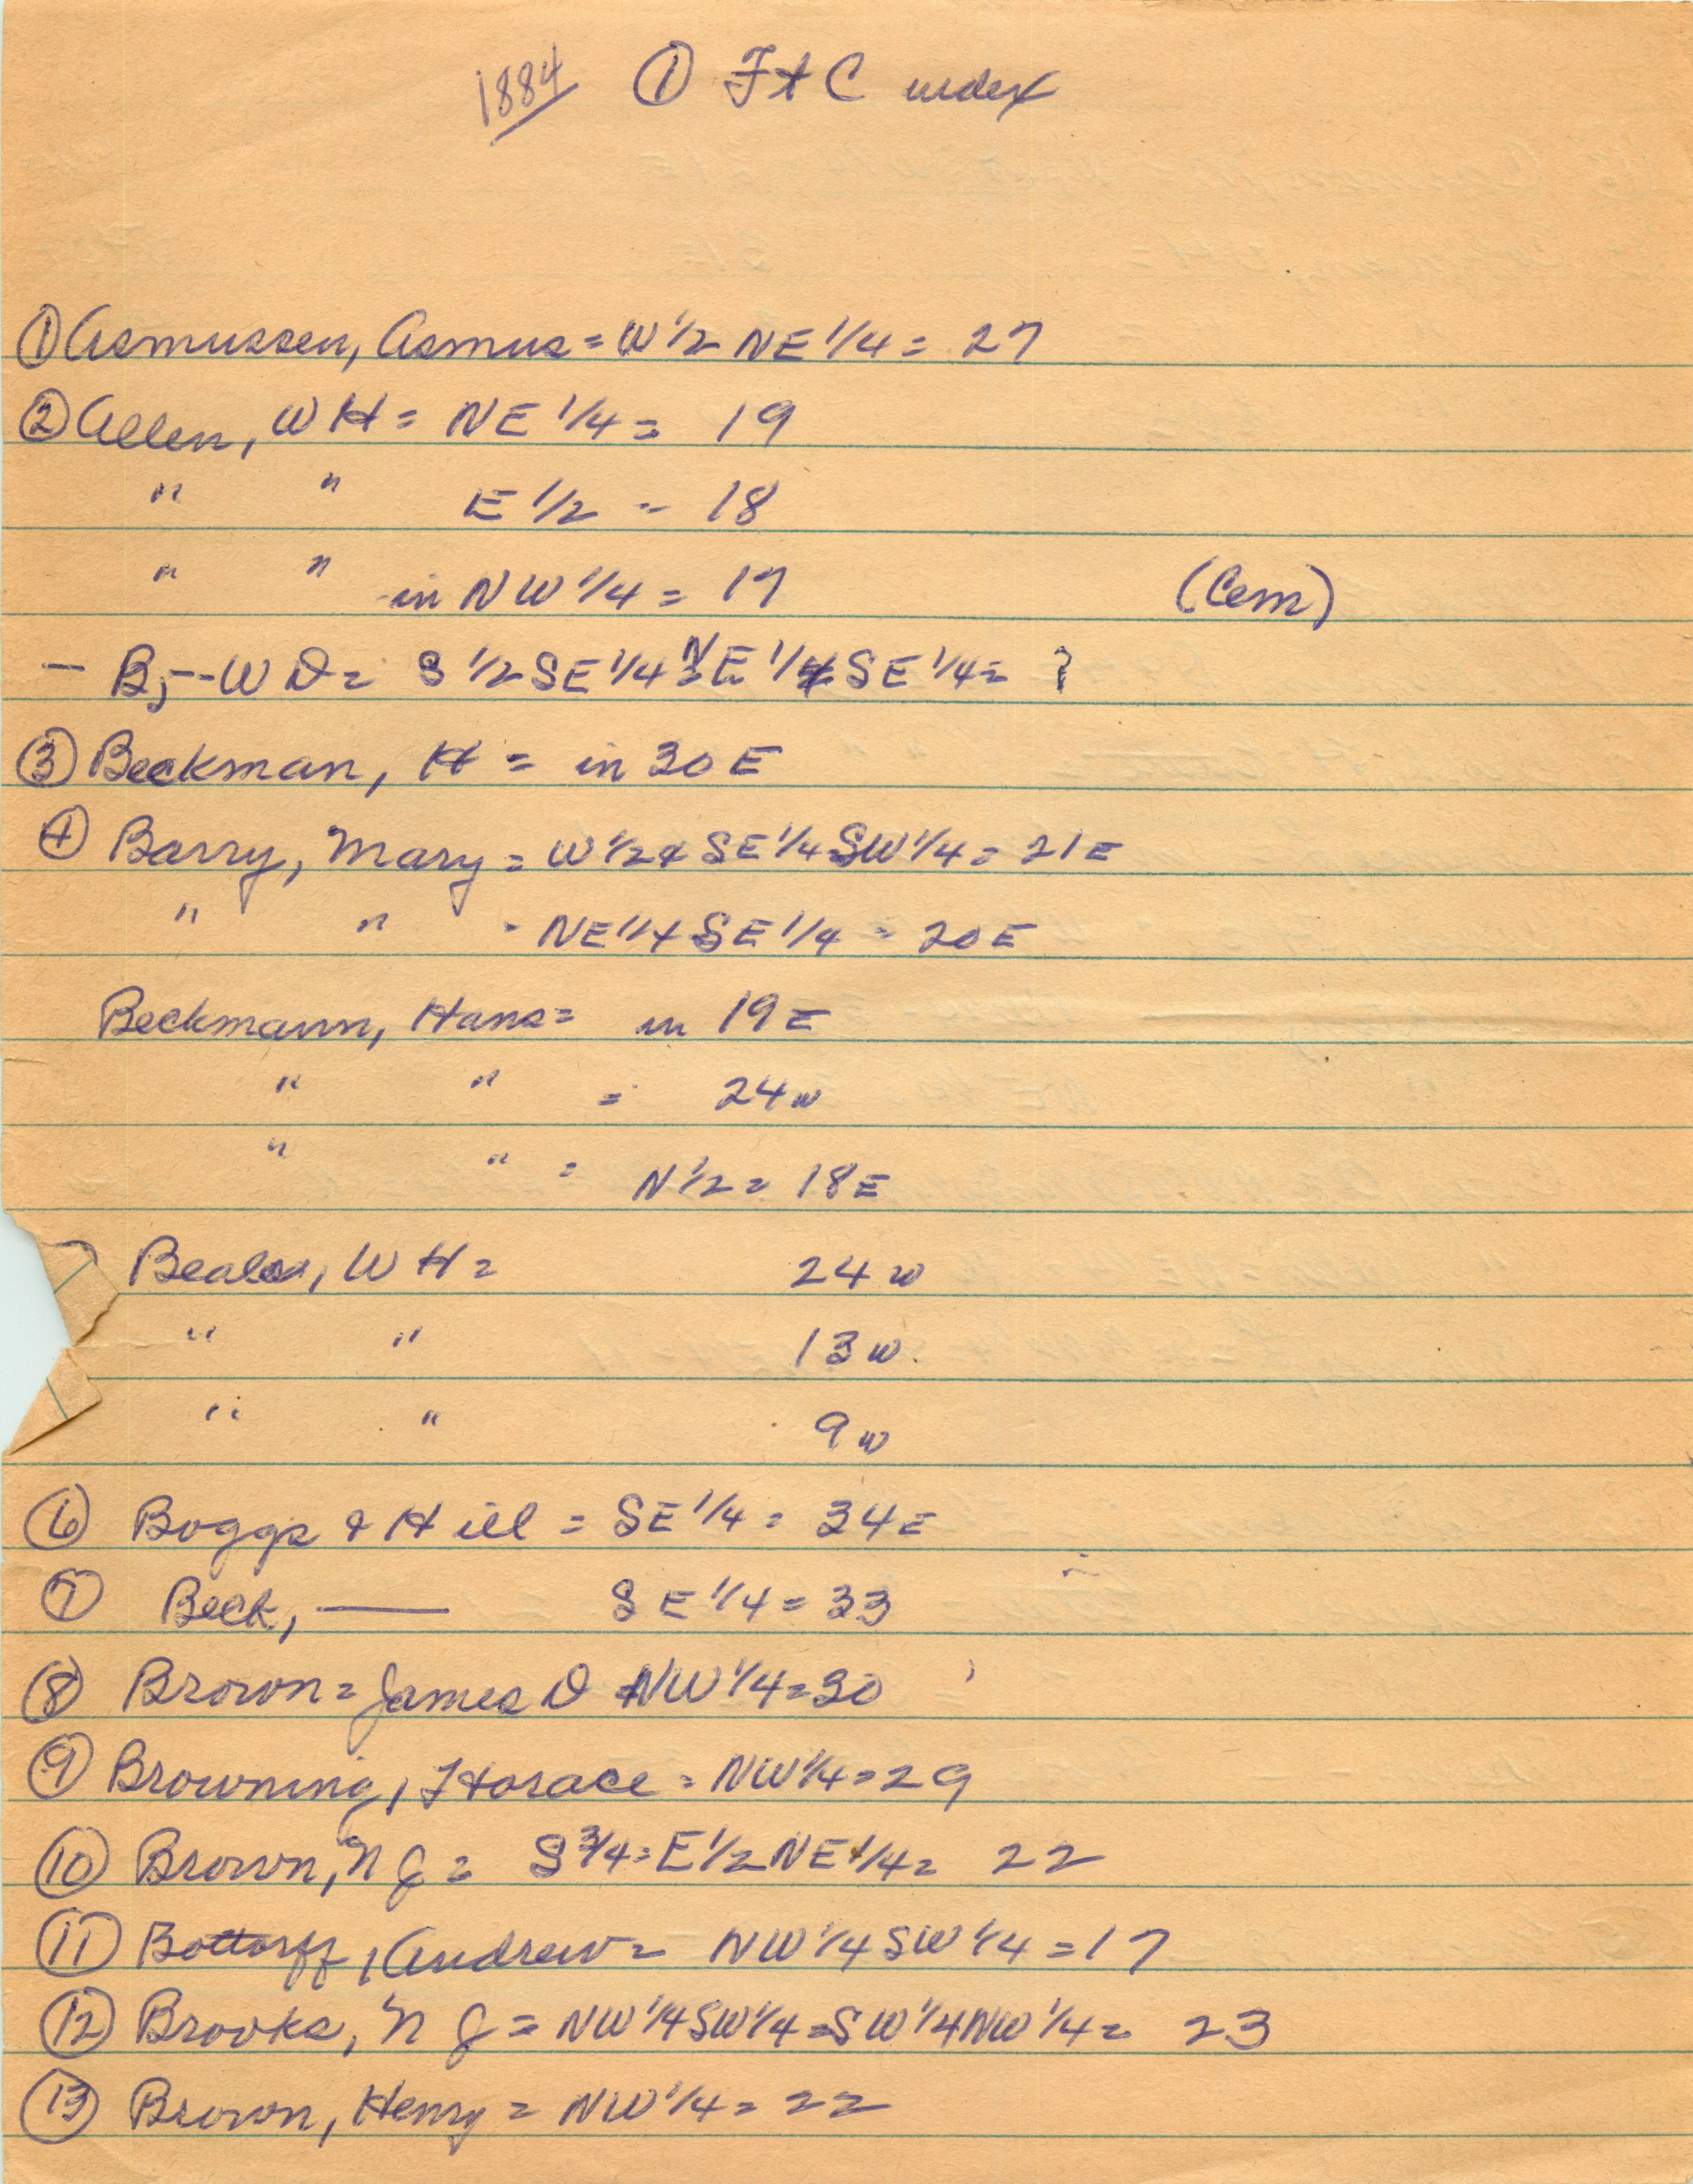 1884 ① Ft C index
① Asmussen, Asmus = W 1/2 NE 1/4 = 27
② Allen, W H = NE 1/4 = 19
" " E 1/2 - 18
" " in NW 1/4 = 17 (Cem)
- B, -- W D = S 1/2 SE 1/4 NE 1/4 SE 1/4 = ?
③ Beekman, H = in 30 E
④ Barry, Mary = W 1/2 & SE 1/4 SW 1/4 = 21 E
" " - NE 1/4 SE 1/4 - 20 E
Beckmann, Hans = in 19 E
" " = 24 w
" " = N 1/2 = 18 E
W H = 24 w
" " 13 w.
" " 9 w
⑥ Boggs & Hill = SE 1/4 = 34 E
⑦ Beck, —— SE 1/4 = 33
⑧ Brown = James D NW 1/4 = 30
⑨ Browning, Horace = NW 1/4 = 29
⑩ Brown, N J = S 3/4 = E 1/2 NE 1/4 = 22
⑪ Bottorff, Andrew = NW 1/4 SW 1/4 = 17
⑫ Brooks, N J = NW 1/4 SW 1/4 = SW 1/4 NW 1/4 = 23
⑬ Brown, Henry = NW 1/4 = 22